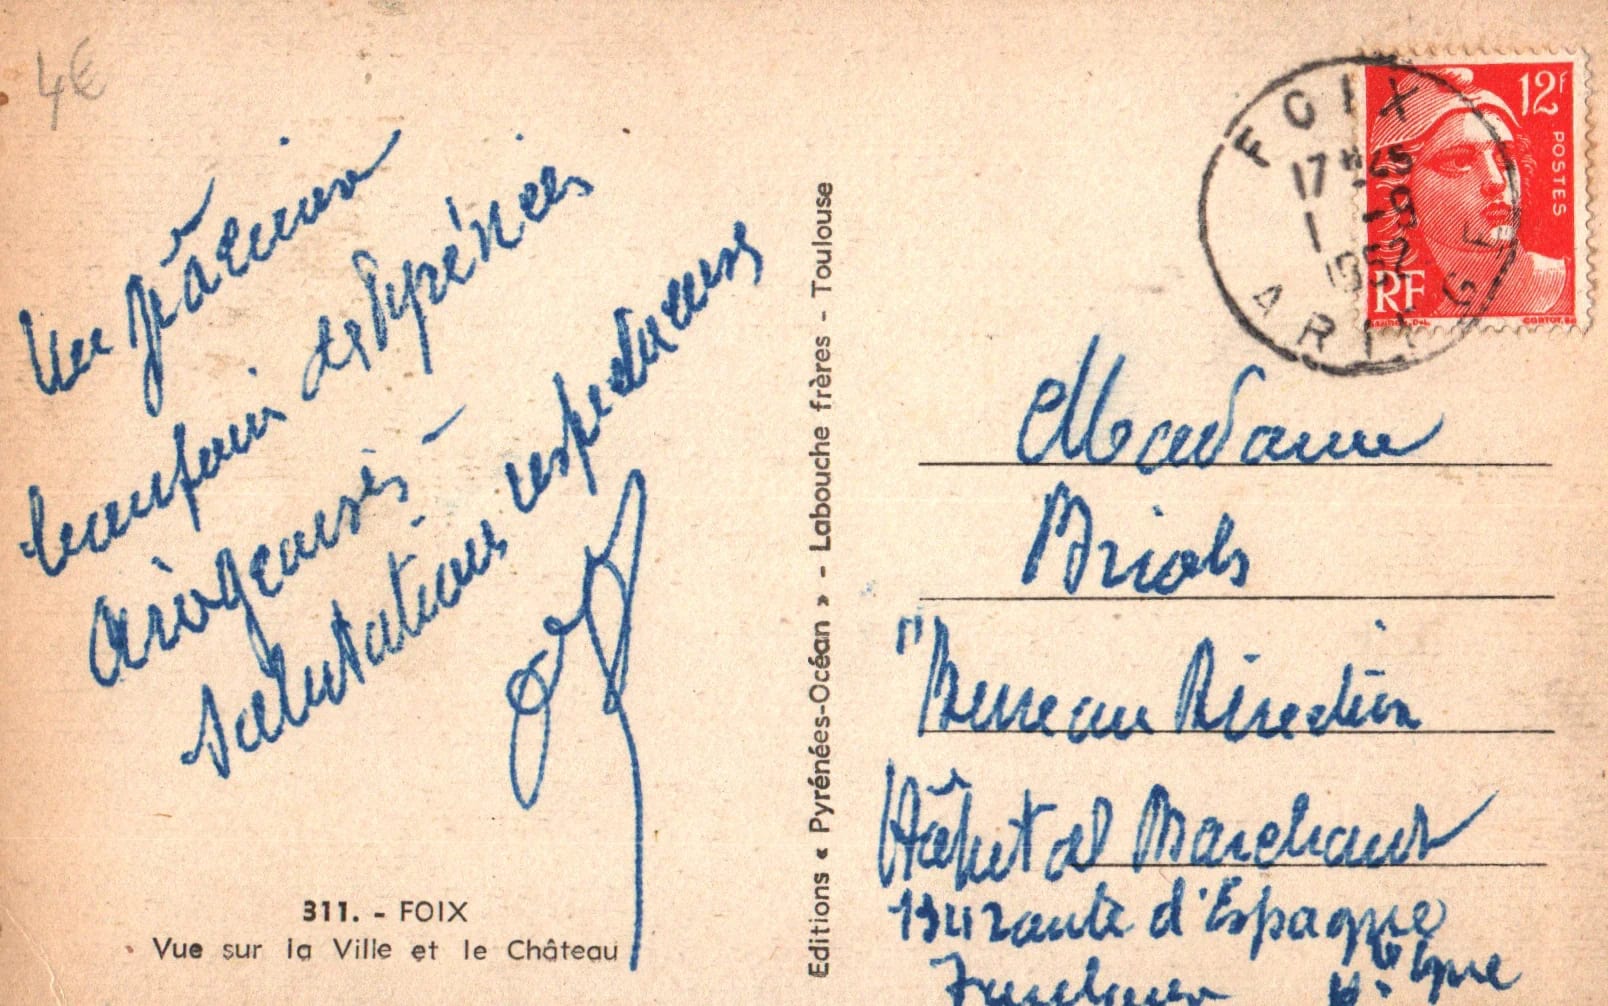 4€
Un
des Pyrénées
ariégeoises -
salutations respectueuses
311. - FOIX
Vue sur la Ville et le Château
Editions « Pyrénées-Océan » - Labouche frères - Toulouse
FOIX
17 H 45
1 - 9
1952
ARIEGE
12F
POSTES
RF
Madame
Briols
"Bureau Direction
Hôpital Marchant
134 route d'Espagne
Toulouse Hte Gne